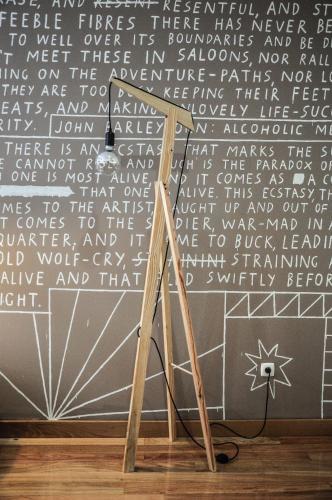 EASE, AND RESENTFUL, AND ST
FEEBLE FIBRES THERE HAS NEVER BE
TO WELL OVER ITS BOUNDARIES AND BE D
T MEET THESE IN SALOONS, NOR RALL
NG ON THE ADVENTURE-PATHS, NOR L
THEY ARE TOO KEEPING THEIR FEET
EATS, AND MAKING UNLOVELY LIFE-SUC
ITY. JOHN BARLEYCORN: ALCOHOLIC M
THERE IS AN ECSTASY THAT MARKS THE S
CANNOT R AND SUCH IS THE PARADOX O
ONE IS MOST ALIVE, AND IT COMES AS A C
THAT ONE ALIVE. THIS ECSTASY, TH
MES TO THE ARTIST, CAUGHT UP AND OUT OF
COMES TO THE SOLDIER, WAR-MAD IN A
QUARTER, AND IT CAME TO BUCK, LEADIN
OLD WOLF-CRY, STRAINING A
ALIVE AND THAT SWIFTLY BEFOR
IGHT.